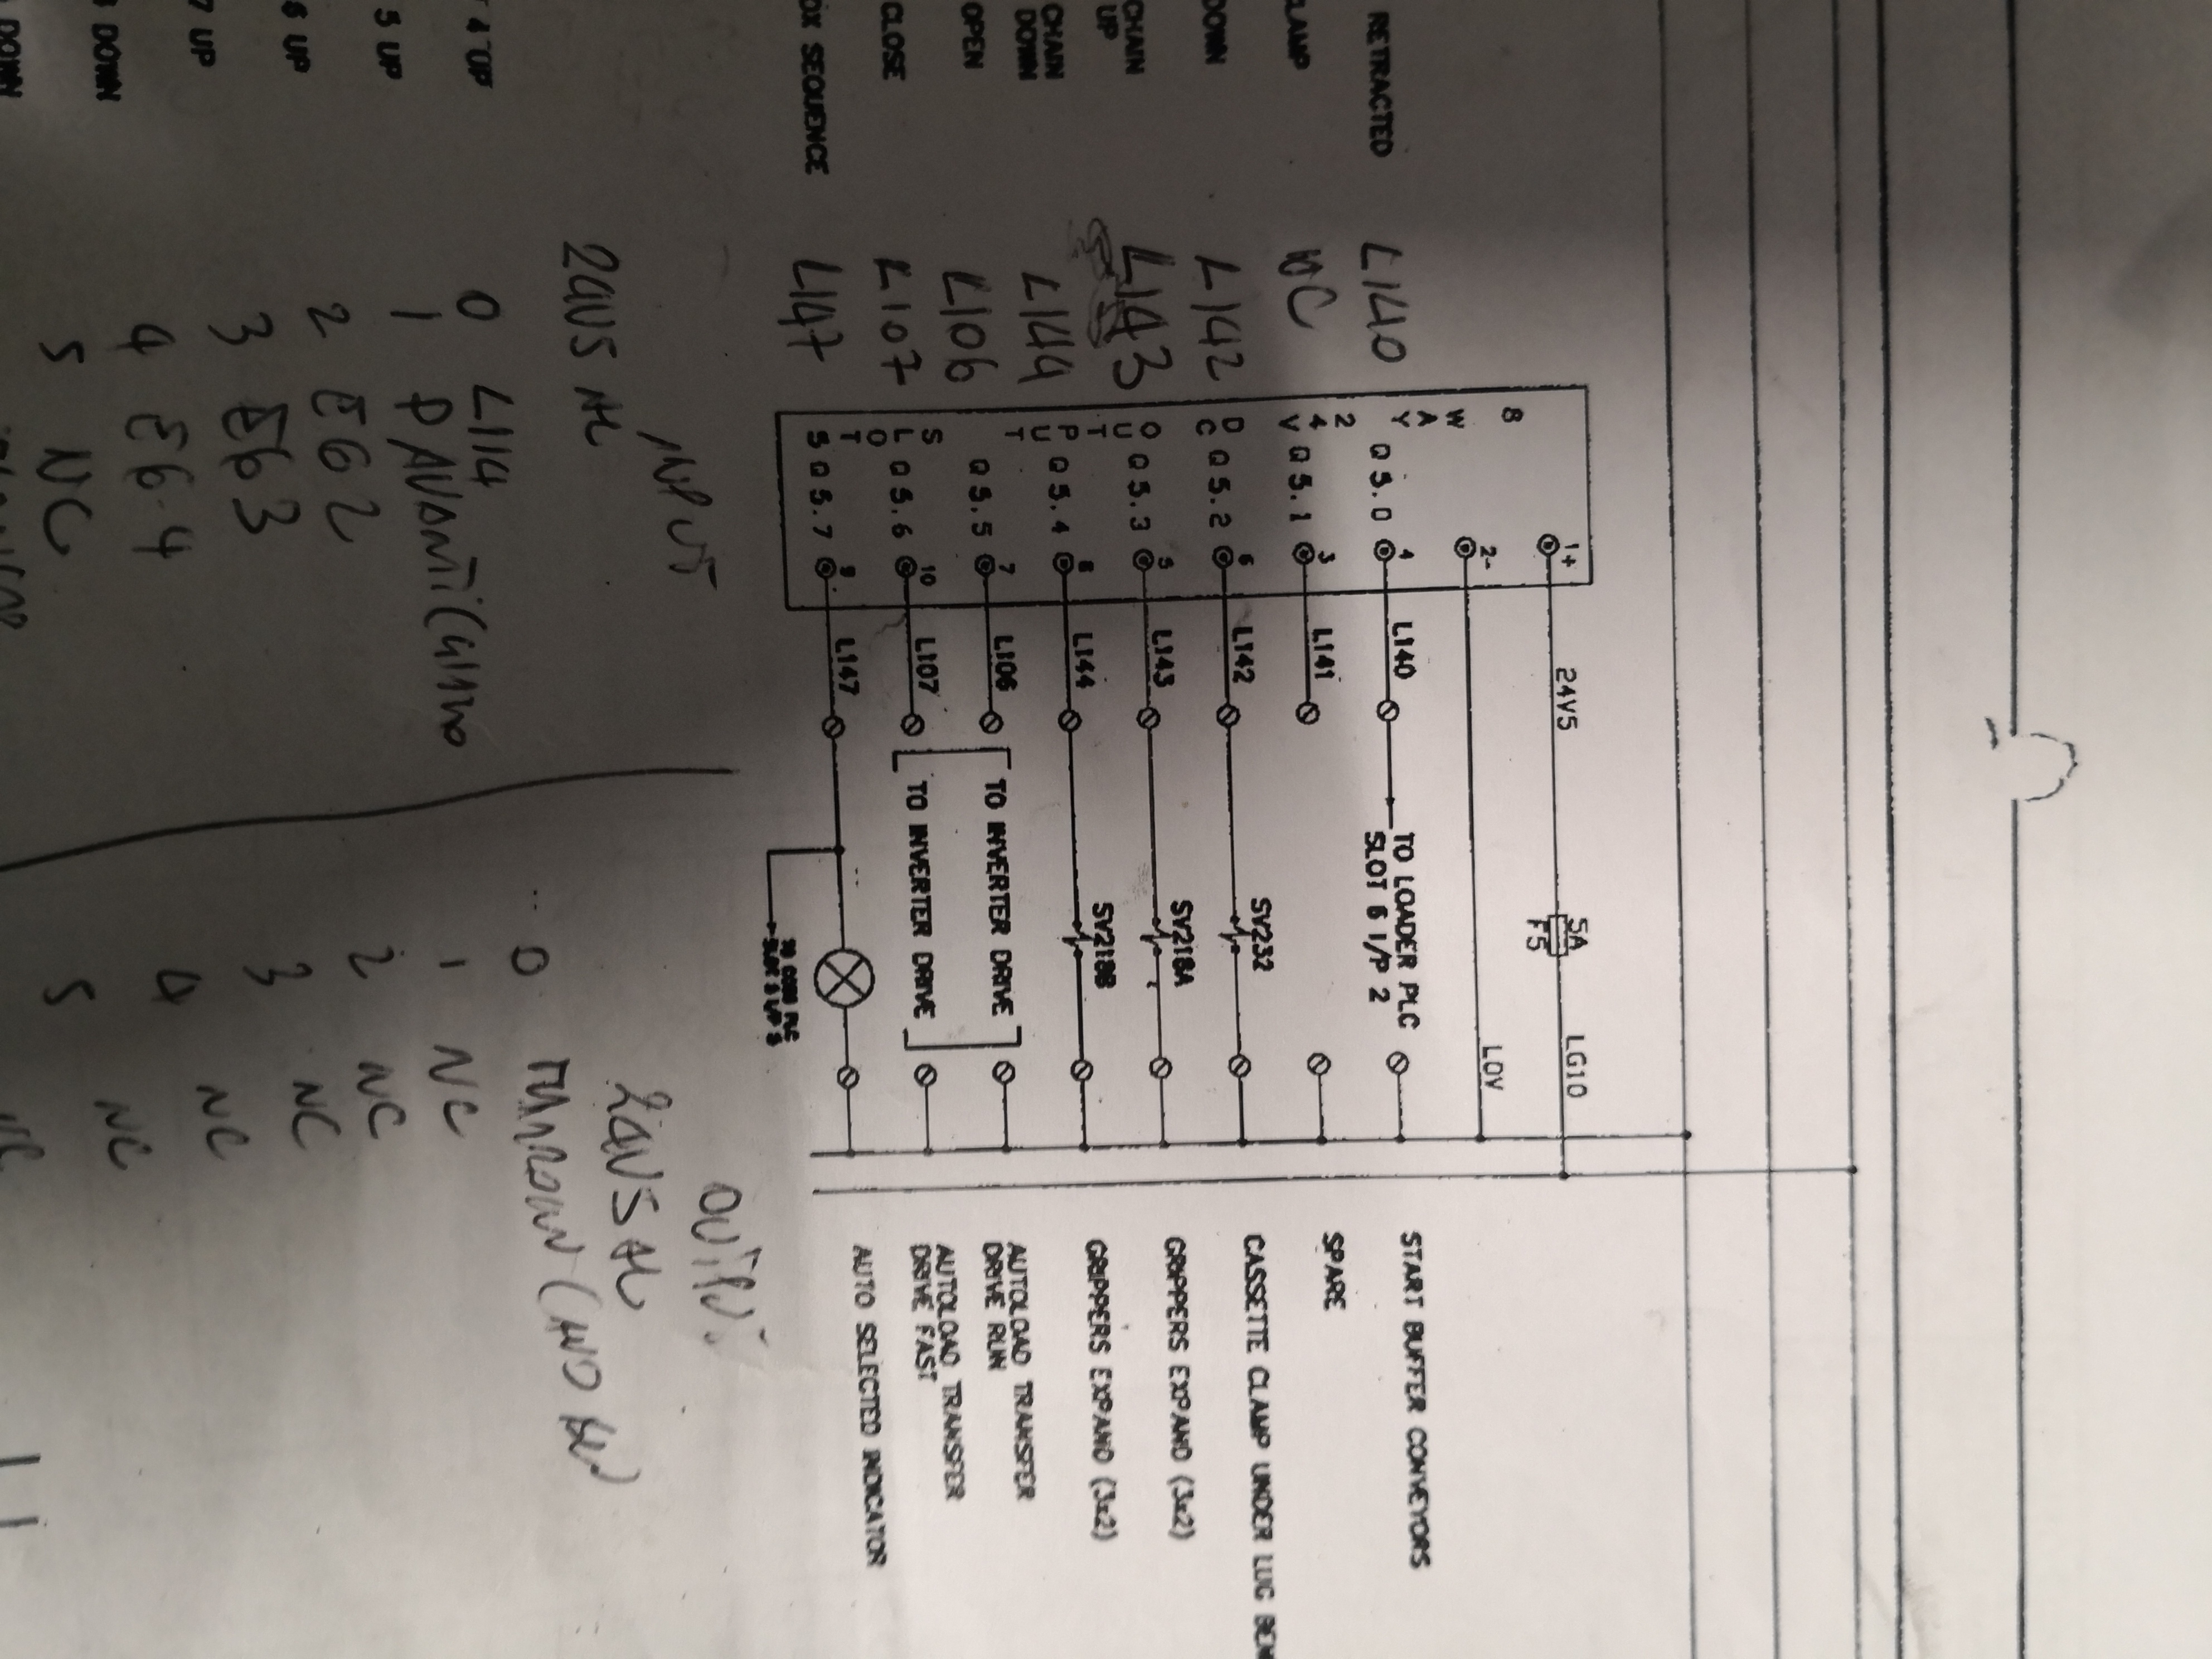 RETRACTED
DOWN
CHAIN
UP
CHAIN
DOWN
OPEN
CLOSE
SEQUENCE
4 UP
5 UP
6 UP
7 UP
DOWN
DOWN
L140
NC
L142
L143
L144
L106
L107
L147
8 WAY 24V DC OUTPUT
SLOT 5
1+
2-
Q5.0 4
Q5.1 3
Q5.2 6
Q5.3 5
Q5.4 8
Q5.5 7
Q5.6 10
Q5.7 9
24V5
5A
F5
LG10
L0V
L140
TO LOADER PLC
SLOT 6 I/P 2
START BUFFER CONVEYORS
L141
SPARE
L142
SV232
CASSETTE CLAMP UNDER LUG
L143
SV218A
GRIPPERS EXPAND (3x2)
L144
SV218B
GRIPPERS EXPAND (3x2)
L106
TO INVERTER DRIVE
AUTOLOAD TRANSFER
DRIVE RUN
L107
TO INVERTER DRIVE
AUTOLOAD TRANSFER
DRIVE FAST
L147
AUTO SELECTED INDICATOR
INPUT
0 L114
1
2 E62
3 E63
4 E6.4
5 NC
0
1 NC
2 NC
3 NC
4 NC
5 NC